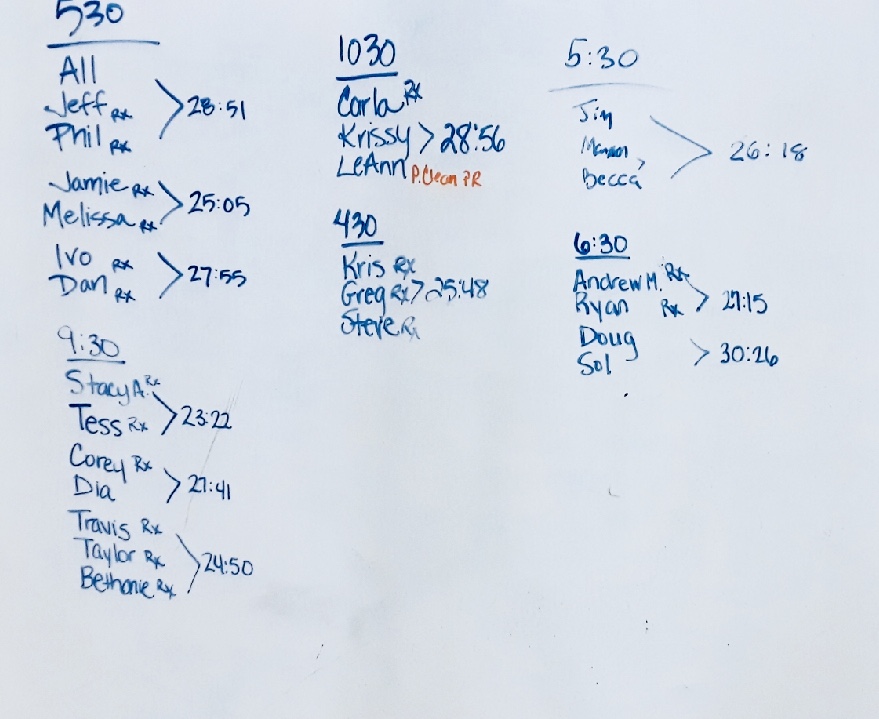 530
All
Jeff Rx
Phil Rx
28:51
Jamie Rx
Melissa Rx
25:05
Ivo Rx
Dan Rx
27:55
9:30
Stacy A. Rx
Tess Rx
23:22
Corey Rx
Dia
27:41
Travis Rx
Taylor Rx
Bethanie Rx
24:50
1030
Carla Rx
Krissy > 28:56
LeAnn P.Clean PR
430
Kris Rx
Greg Rx > 25:48
Steve Rx
5:30
Jim
Becca
26:18
6:30
Andrew M. Rx
Ryan Rx
27:15
Doug
Sol
30:26